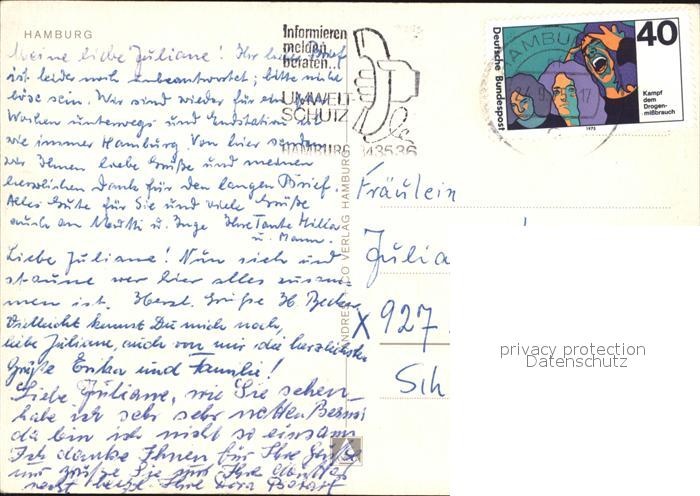 HAMBURG
Meine liebe Juliane! Ihr lieber Brief
ist leider noch unbeantwortet; bitte nicht
böse sein. Wir sind wieder für ein
Wochen unterwegs und Endstation ist
wie immer Hamburg. Von hier senden
wir Ihnen liebe Grüße und meinen
herzlichen Dank für den langen Brief.
Alles Gute für Sie und viele Grüße
auch an Mutti u. Inge Ihre Tante Milla
u. Mann.
Liebe Juliane! Nun sieh und
staune wer hier alles zusam-
men ist. Herzl. Grüße H. Becker
Vielleicht kennst Du mich noch,
liebe Juliane, auch von mir die herzlichsten
Grüße Erika und Familie!
Liebe Juliane, wie Sie sehen
habe ich sehr sehr netten Besuch
da bin ich nicht so einsam
Ich danke Ihnen für Ihre Grüße
und grüße Sie und Ihre
recht herzl. Ihre Dora
Informieren
melden
beraten...
UMWELT-
SCHUTZ
HAMBURG
ANDRES + CO VERLAG HAMBURG
43536
HAMBURG
Deutsche Bundespost
40
Kampf
dem
Drogen-
mißbrauch
1975
Fräulein
Julia
X 927
Sch
privacy protection
Datenschutz